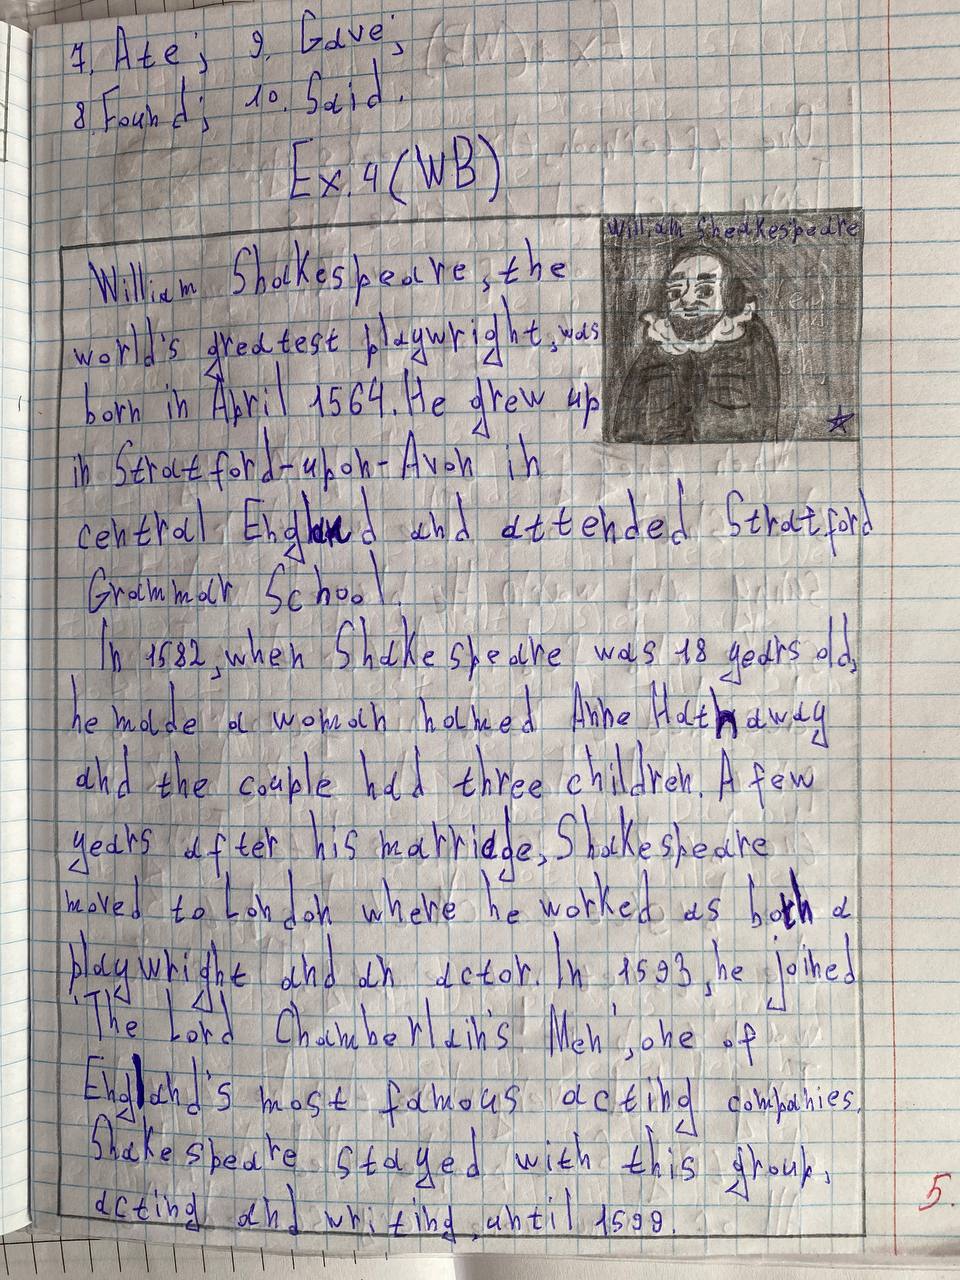 7. Ate; 9. Gave;
8. Found; 10. Said.
Ex. 4 (WB)
William Sheakespeare
William Shakespeare, the
world's greatest playwright, was
born in April 1564. He grew up
in Stratford-upon-Avon in
central England and attended Stratford
Grammar School.
In 1582, when Shakespeare was 18 years old,
he made a woman named Anne Hathaway
and the couple had three children. A few
years after his marriage, Shakespeare
moved to London where he worked as both a
playwright and an actor. In 1593, he joined
'The Lord Chamberlain's Men', one of
England's most famous acting companies.
Shakespeare stayed with this group,
acting and writing, until 1599.
5.